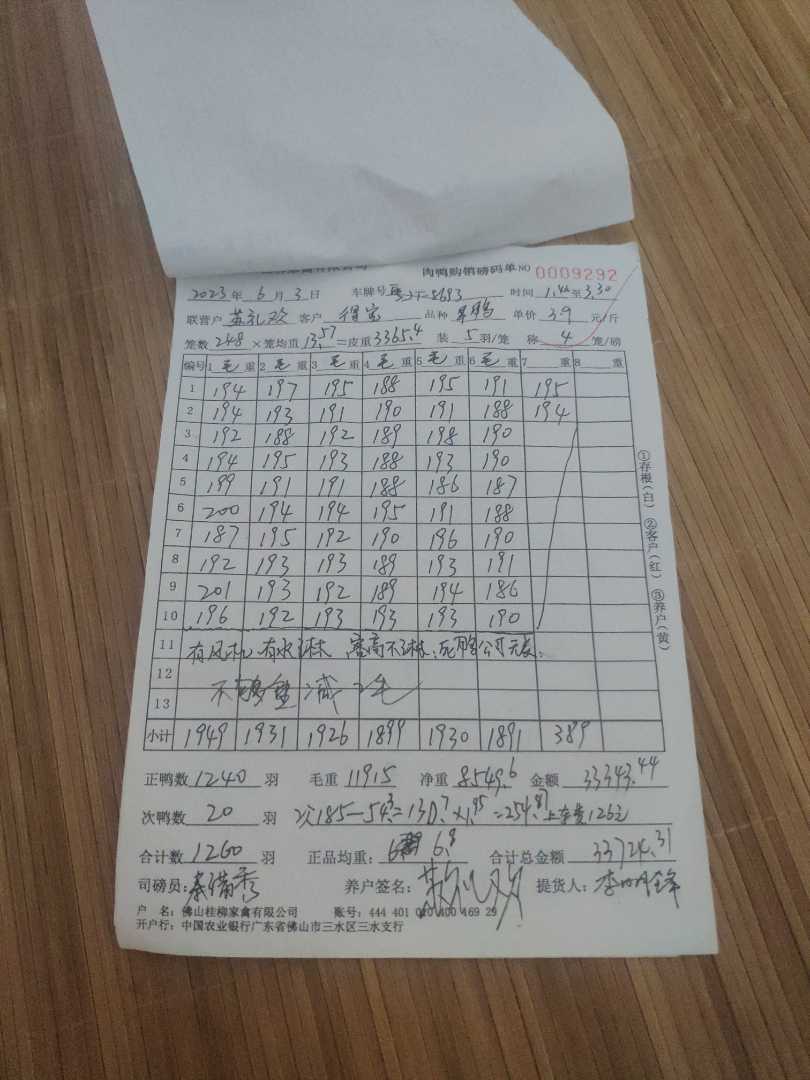 肉鸭购销磅码单 NO 0009292
2023年 6月 3日 车牌号 8693 时间 1.40至3.30
联营户 苏礼欢 客户 得宝 品种 单价 3.9 元/斤
笼数 248 ×笼均重 13.57 =皮重 3365.4 装 5 羽/笼 称 4 笼/磅
编号 1 毛 重 2 毛 重 3 毛 重 4 毛 重 5 毛 重 6 毛 重 7 重 8 重
1 194 197 195 188 195 191 195
2 194 193 191 190 191 188 194
3 192 188 192 189 198 190
4 194 195 193 188 193 190
5 199 191 191 188 186 187
6 200 194 194 195 191 188
7 187 195 192 190 196 190
8 192 193 193 189 193 191
9 201 193 192 189 194 186
10 196 192 193 193 193 190
11 有风机 有水淋 高不淋 死鸭公司无责
12 不 减 2毛
13
小计 1949 1931 1926 1899 1930 1891 389
正鸭数 1240 羽 毛重 11915 净重 8549.6 金额 33343.44
次鸭数 20 羽 次185-54.3=130.7×1.95=254.87 上车费126元
合计数 1260 羽 正品均重: 6.8 合计总金额 33724.31
司磅员: 养户签名: 苏礼欢 提货人: 李
户 名: 佛山桂柳家禽有限公司 账号: 444 401 010 400 469 29
开户行: 中国农业银行广东省佛山市三水区三水支行
①存根(白) ②客户(红) ③养户(黄)